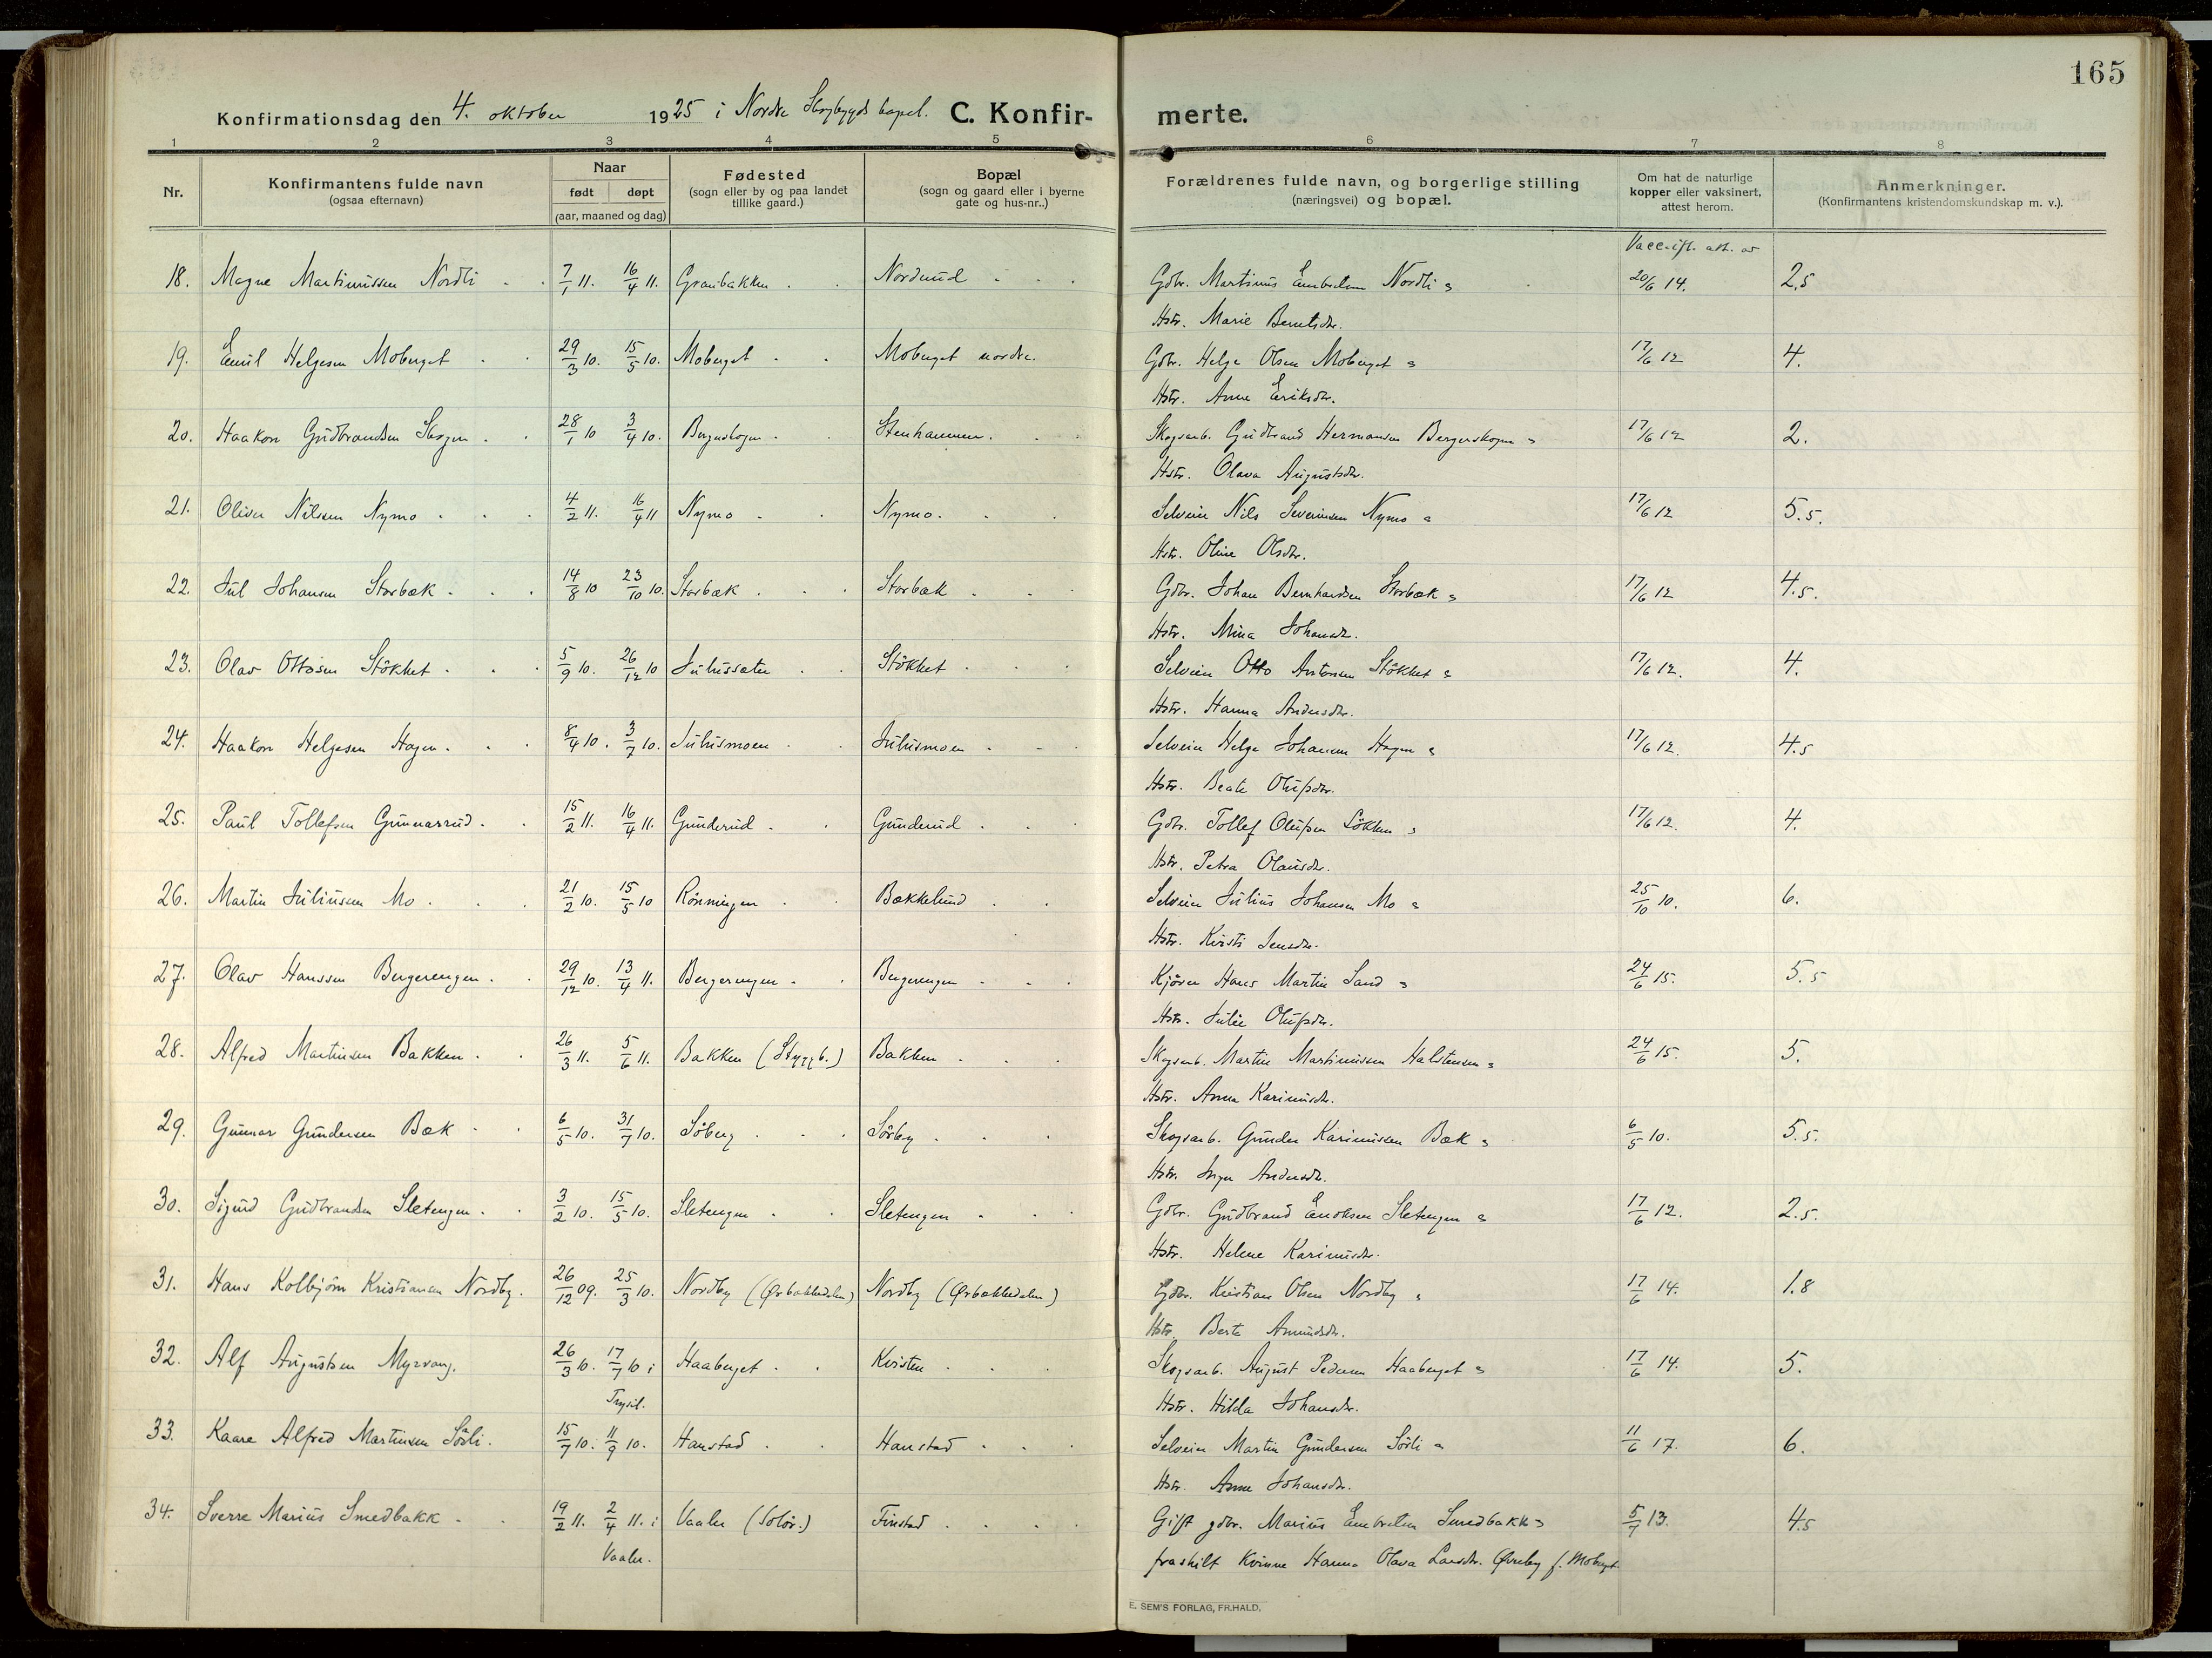 165
Konfirmationsdag den 4. oktober 1925 i Nordre Skogbygds kapel. C. Konfir- merte.
1 2 3 4 5 6 7 8
Nr. Konfirmantens fulde navn (ogsaa efternavn) Naar født døpt (aar, maaned og dag) Fødested (sogn eller by og paa landet tillike gaard.) Bopæl (sogn og gaard eller i byerne gate og hus-nr..) Forældrenes fulde navn, og borgerlige stilling (næringsvei) og bopæl. Om hat de naturlige kopper eller vaksinert, attest herom. Anmerkninger. (Konfirmantens kristendomskundskap m. v.).
Vacc. ifl. att. av
18. Magne Martinussen Nordli 7/1 11. 16/4 11. Granbakken Nordlund Gdbr. Martinus Embretsen Nordli & 20/6 14. 2.5
Hstr. Marie Berntsdtr.
19. Emil Helgesen Moberget 29/3 10. 15/5 10. Moberget Moberget nordre. Gdbr. Helge Olsen Moberget & 17/6 12 4.
Hstr. Anne Eriksdtr.
20. Haakon Gudbrandsen Skogen 28/1 10 3/4 10. Bergerskogen Stenhammer. Skogsarb. Gudbrand Hermansen Bergerskogen & 17/6 12 2.
Hstr. Olava Augustsdtr.
21. Oliver Nilssen Nymo 4/2 11. 16/4 11 Nymo Nymo. Selveier Nils Severinsen Nymo & 17/6 12 5.5.
Hstr. Oline Olsdtr.
22. Jul Johansen Storbæk 14/8 10 23/10 10. Storbæk Storbæk Gdbr. Johan Bernhardsen Storbæk & 17/6 12 4.5.
Hstr. Mina Johansdtr.
23. Olav Ottosen Støkket 5/9 10. 26/12 10 Julussæter Støkket Selveier Otto Antonsen Støkket & 17/6 12. 4.
Hstr. Hanna Andersdtr.
24. Haakon Helgesen Hagen 8/4 10. 3/7 10. Julusmoen Julusmoen Selveier Helge Johansen Hagen & 17/6 12. 4.5
Hstr. Beate Olufsdtr.
25. Paul Tollefsen Gunnarrud 15/2 11. 16/4 11. Gunderud Gunderud Gdbr. Tollef Olufsen Løkken & 17/6 12. 4.
Hstr. Petra Olausdtr.
26. Martin Juliussen Mo 21/2 10. 15/5 10 Rønningen Bækkelund Selveier Julius Johansen Mo & 25/10 10. 6.
Hstr. Kristi Jensdtr.
27. Olav Hanssen Bergerengen 29/12 10. 13/4 11. Bergerengen Bergerengen Kjører Hans Martin Sand & 24/6 15. 5.5
Hstr. Julie Olufsdtr.
28. Alfred Martinsen Bakken 26/3 11. 5/6 11. Bakken (Skyggb.) Bakken Skogsarb. Martin Martinussen Halstensen & 24/6 15. 5.
Hstr. Anna Karinusdtr.
29. Gunnar Gundersen Bæk 6/5 10. 31/7 10. Søberg Sørby Skogsarb. Gunder Karinussen Bæk & 6/5 10. 5.5.
Hstr. Inga Andersdtr.
30. Sigurd Gudbrandsen Sletengen 3/2 10. 15/5 10. Sletengen Sletengen Gdbr. Gudbrand Enoksen Sletengen & 17/6 12. 2.5.
Hstr. Helene Karinusdtr.
31. Hans Kolbjørn Kristiansen Nordby. 26/12 09. 25/3 10. Nordby (Ørbækkedalen) Nordby (Ørbækkedalen) Gdbr. Kristian Olsen Nordby & 17/6 14. 1.8
Hstr. Berte Amundsdtr.
32. Alf Augustsen Myrvang. 26/3 10. 17/7 10 i Trysil. Haaberget Kvisten Skogsarb. August Pedersen Haaberget & 17/6 14. 5.
Hstr. Hilda Johansdtr.
33. Kaare Alfred Martinsen Sørli. 15/7 10. 11/9 10. Hanstad Hanstad Selveier Martin Gundersen Sørli & 11/6 17. 6.
Hstr. Anne Johansdtr.
34. Sverre Marius Smedbakk 19/2 11. 2/4 11. i Vaaler. Vaaler (Solør.) Finstad Gift gdbr. Marius Embretsen Smedbakk & 5/7 13. 4.5
fraskilt kvinne Hanna Olava Larsdtr. Øvreby f. Moberget.
E. SEM'S FORLAG, FR.HALD.